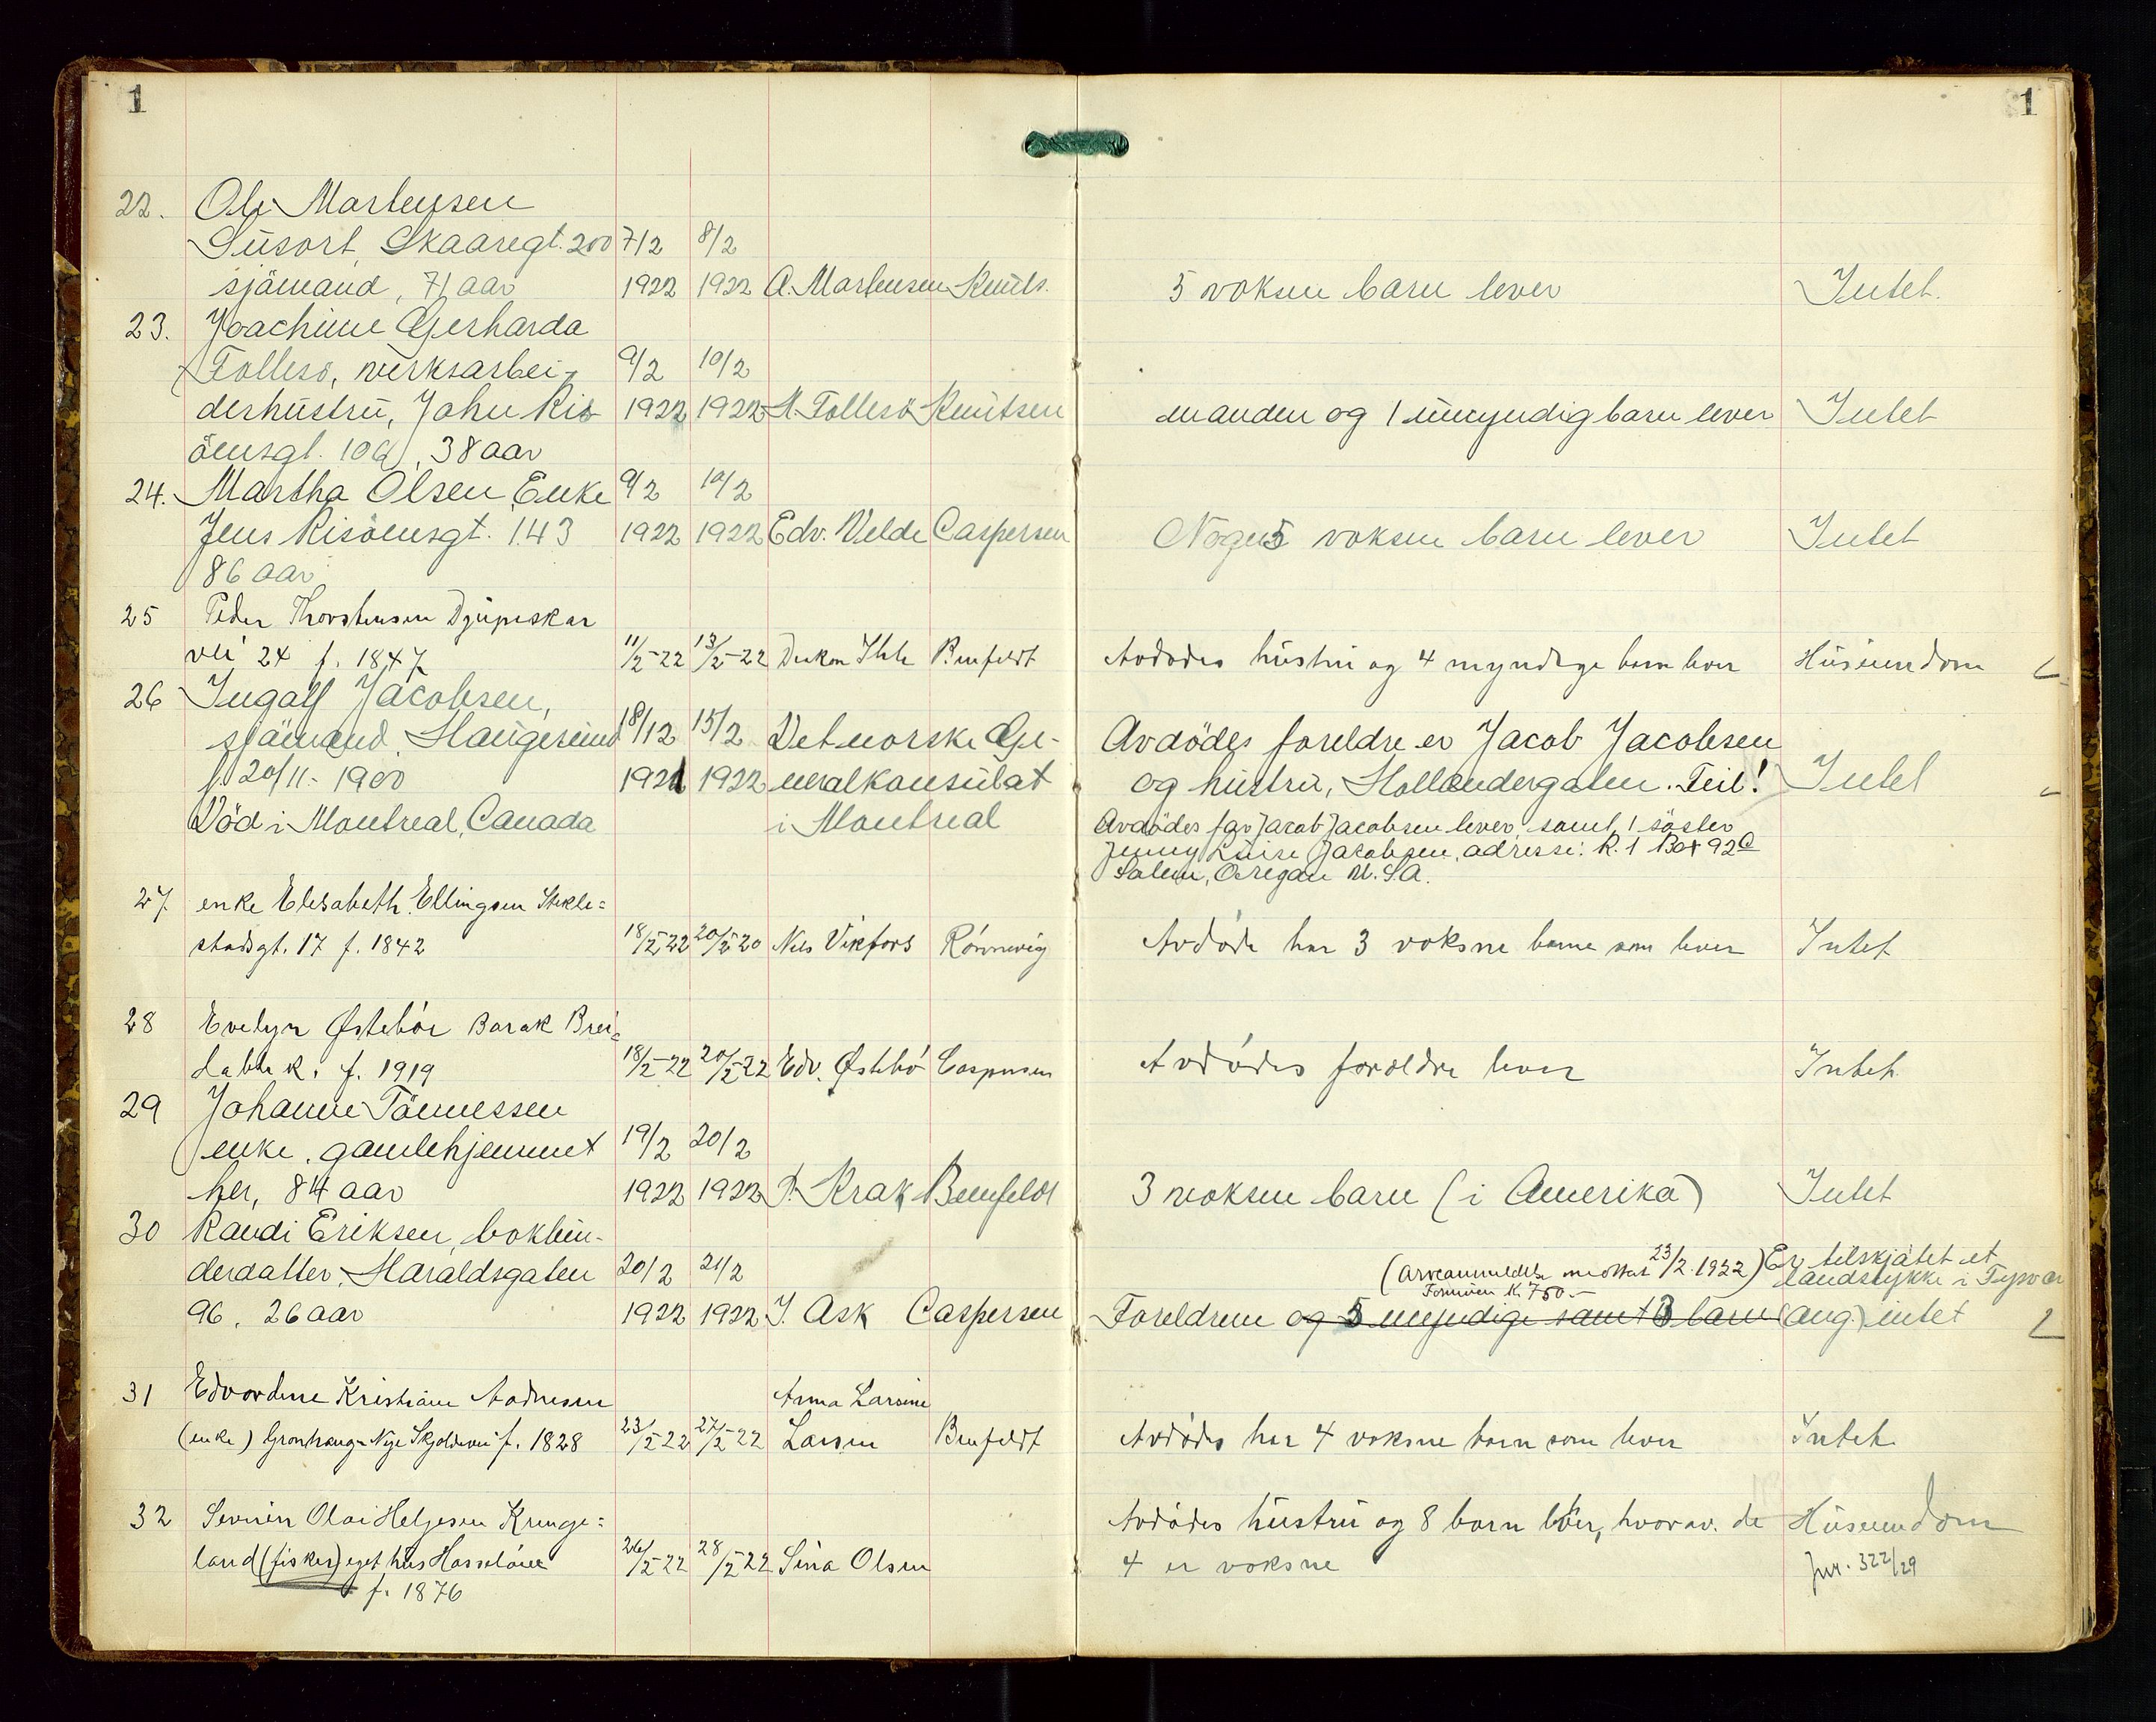 1
1
22. Ole Martensen
Susort, Skaaregt. 200 7/2 8/2
sjömand, 71 aar 1922 1922 A. Martensen Knuts. 5 voksne barn lever Intet.
23. Joachime Gerharda
Tollesö, verksarbei- 9/2 10/2
derhustru, John Ris- 1922 1922 M. Tollesö Knutsen manden og 1 umyndig barn lever Intet
öensgt. 106, 38 aar
24. Martha Olsen, Enke 9/2 10/2
Jens Risöensgt. 143 1922 1922 Edv. Velde Caspersen 5 voksne barn lever Intet
86 aar
25 Peder Thorstensen Djupeskar
vei 24 f. 1847 11/2-22 13/2-22 Benfeldt Avdødes hustru og 4 myndige barn lever Huseiendom
26 Ingolf Jacobsen,
sjömand, Haugesund 18/12 15/2 Det norske Ge- Avdödes foreldre er Jacob Jacobsen
f. 20/11-1900 1921 1922 neralkonsulat og hustru, Hollendergaten. Feil! Intet
Död i Montreal, Canada i Montreal Avdödes far Jacob Jacobsen lever, samt 1 söster
Jenny Luise Jacobsen, adresse: R. 1 Box 92C
Salem, Oregan U.S.A.
27 enke Elisabeth Ellingsen Stikle=
stadsgt. 17 f. 1842 18/2 22 20/2 20 Nils Vikfors Rönnevig Avdöde har 3 voksne barne som lever Intet
28 Evelyn Østebör Barak Brei=
dablik. f. 1919 18/2-22 20/2-22 Edv. Østebö Caspersen Avdödes foreldre lever Intet
29 Johanne Tönnessen
enke, gamlehjemmet 19/2 20/2
her, 84 aar 1922 1922 P. Krak Benfeldt 3 voksne barn (i Amerika) Intet
30 Randi Eriksen, bokbin-
derdatter, Haraldsgaten 20/2 21/2 (Arveanmeldelse mottat 23/2.1922) Er tilskjötet et
landstykke i Tysvær
Formuen k. 750.-
96, 26 aar 1922 1922 J. Ask Caspersen Foreldrene og 5 umyndige samt 3 barn (ang.) intet
31 Edvardine Kristiane Andresen Anna Larsine
(enke) Gronhaug Nye Skjoldevei f. 1828 23/2 22 27/2-22 Larsen Benfeldt Avdöde har 4 voksne barn som lever Intet
32 Severin Olai Helgesen Krunge= Avdödes hustru og 8 barn lever, hvorav de Huseiendom
land (fisker) eget hus Hasselöen 26/2-22 28/2 22 Sina Olsen 4 er voksne Jnr. 322/29
f. 1876